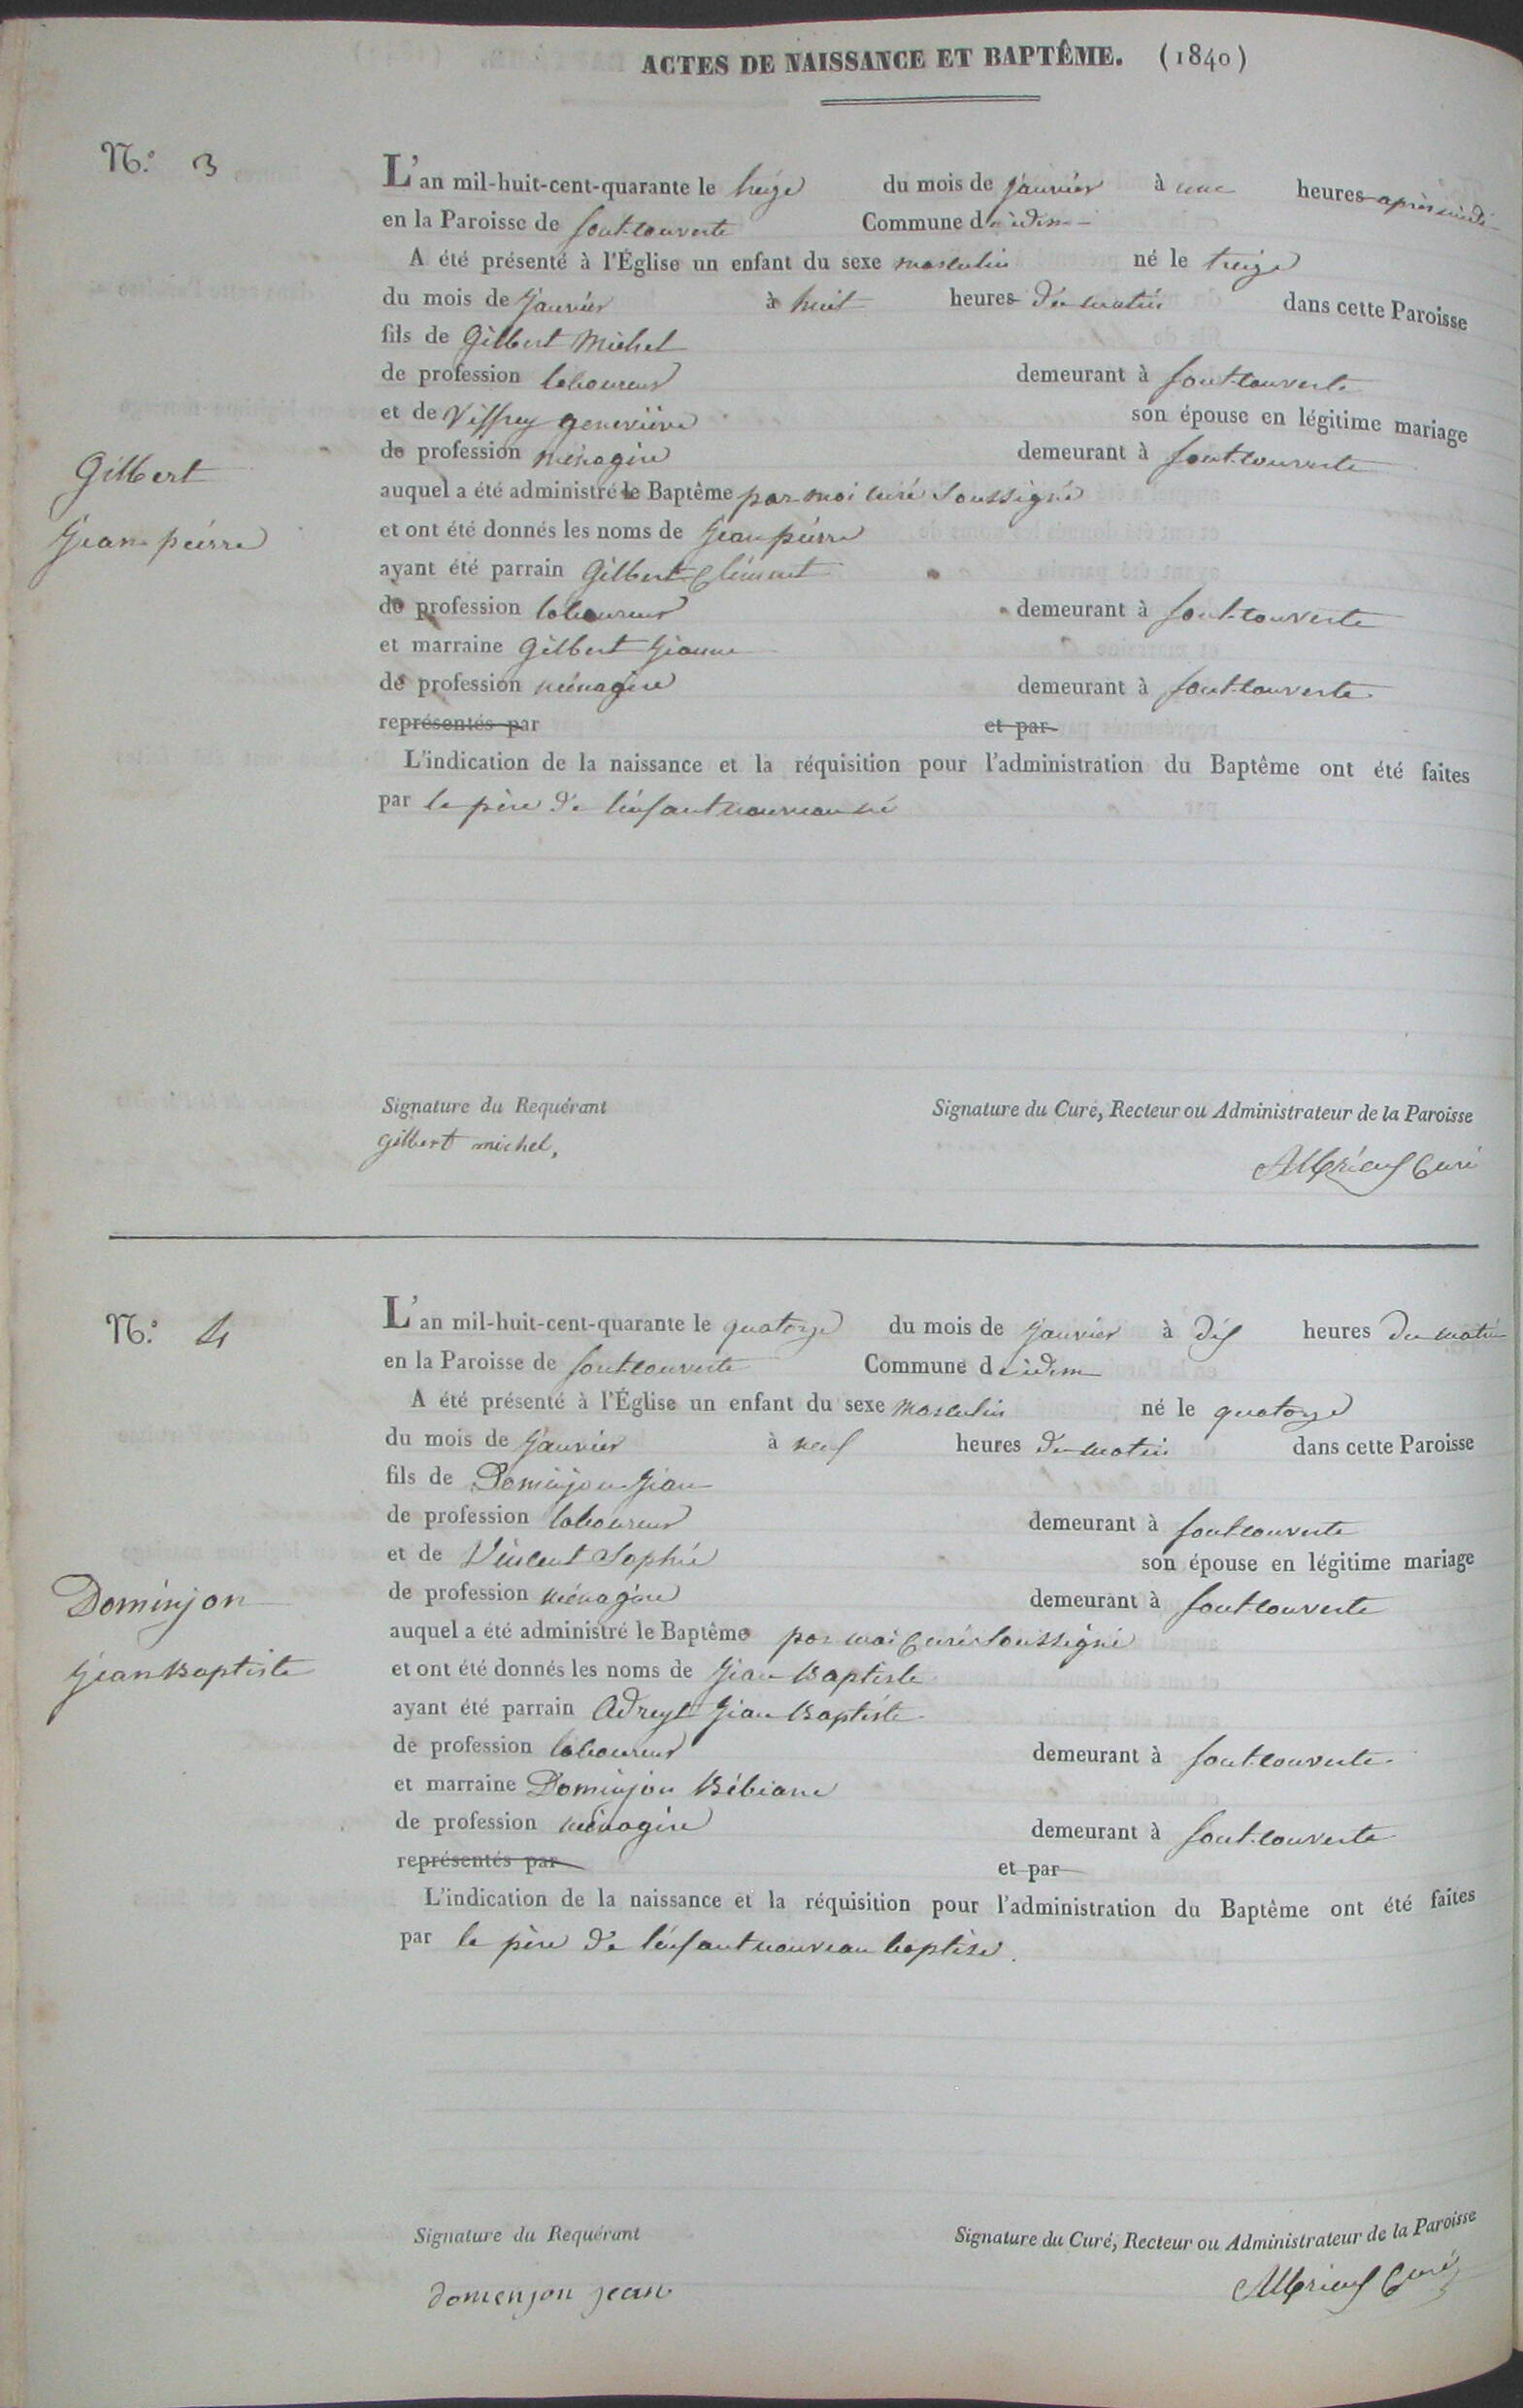 ACTES DE NAISSANCE ET BAPTÊME. (1840)
N.º 3
L'an mil-huit-cent-quarante le treize du mois de janvier à une heures après midi
en la Paroisse de fontcouverte Commune de idem
A été présenté à l'Église un enfant du sexe masculin né le treize
du mois de janvier à huit heures du matin dans cette Paroisse
fils de Gilbert Michel
de profession laboureur demeurant à fontcouverte
et de Viffrey geneviève son épouse en légitime mariage
de profession ménagère demeurant à fontcouverte
auquel a été administré le Baptême par moi curé Soussigné
Gilbert
Jean pierre
et ont été donnés les noms de Jean pierre
ayant été parrain Gilbert Clément
de profession laboureur demeurant à fontcouverte
et marraine Gilbert Jeanne
de profession ménagère demeurant à fontcouverte
représentés par et par
L'indication de la naissance et la réquisition pour l'administration du Baptême ont été faites
par le père de l'enfant nouveau né
Signature du Requérant Signature du Curé, Recteur ou Administrateur de la Paroisse
gilbert michel,
Curé
N.º 4
L'an mil-huit-cent-quarante le quatorze du mois de janvier à dix heures du matin
en la Paroisse de fontcouverte Commune de idem
A été présenté à l'Église un enfant du sexe masculin né le quatorze
du mois de janvier à neuf heures du matin dans cette Paroisse
fils de Dominjon Jean
de profession laboureur demeurant à fontcouverte
et de Vincent Sophie son épouse en légitime mariage
de profession ménagère demeurant à fontcouverte
auquel a été administré le Baptême par moi Curé soussigné
Dominjon
Jean Baptiste
et ont été donnés les noms de Jean Baptiste
ayant été parrain Adreyt Jean Baptiste
de profession laboureur demeurant à fontcouverte
et marraine Dominjon Bébiane
de profession ménagère demeurant à fontcouverte
représentés par et par
L'indication de la naissance et la réquisition pour l'administration du Baptême ont été faites
par le père de l'enfant nouveau baptisé.
Signature du Requérant Signature du Curé, Recteur ou Administrateur de la Paroisse
domenjon jean
Curé